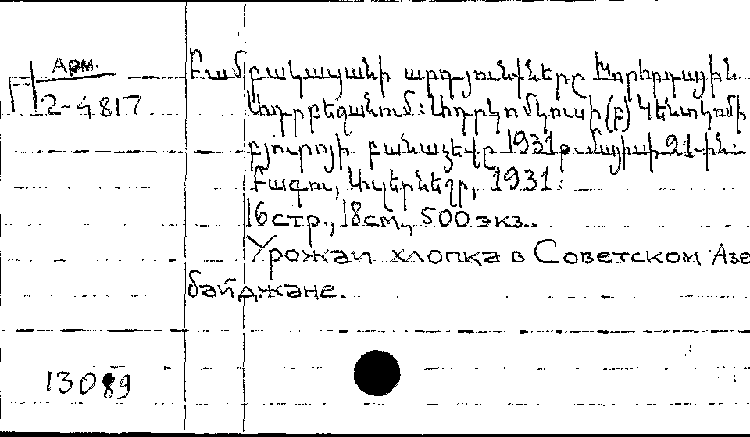 Арм.
12-4817
Բամբակացանի արդյունքները Խորհրդային
Ադրբեջանում: Ադրկոմկուսի(բ) Կենտկոմի
բյուրոյի բանաձեվը 1931 թ. մայիսի 21-ին.
Բագու, Ազերնեշր, 1931.
16 стр., 18 см., 500 экз..
Урожаи хлопка в Советском Азе
байджане.
13089